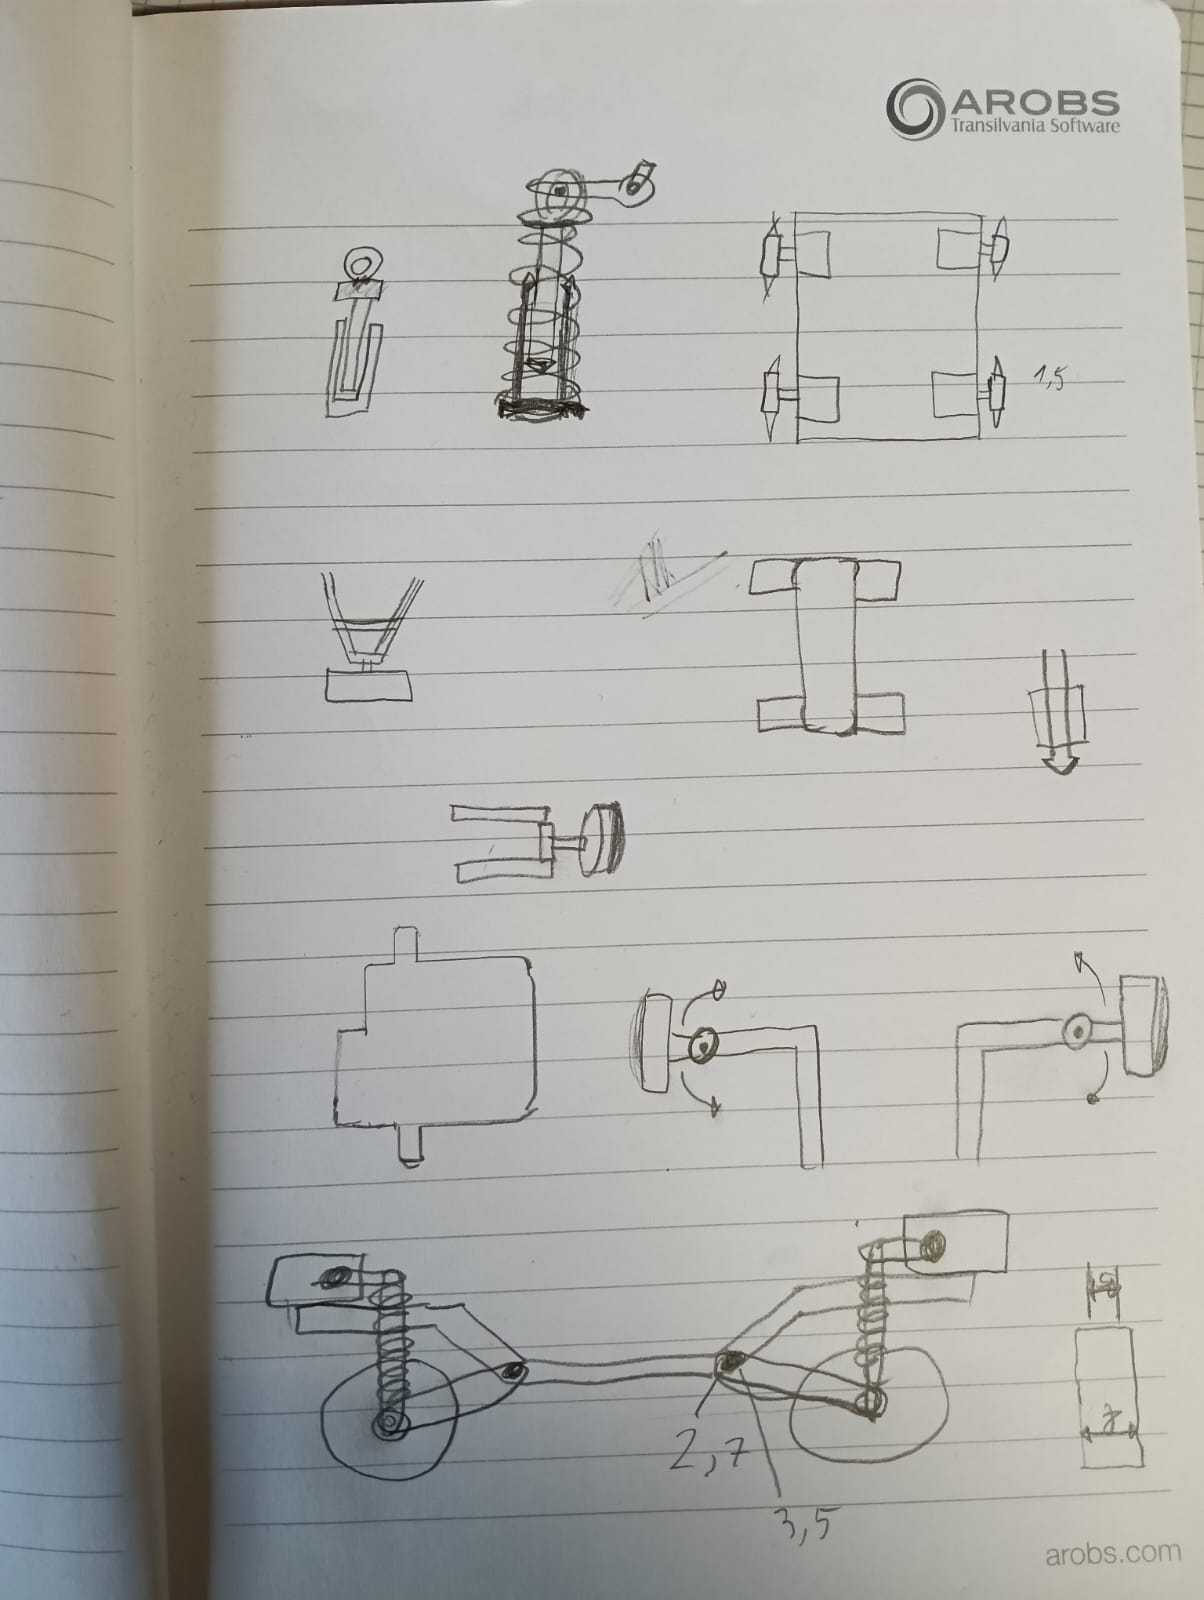 AROBS
Transilvania Software
1,5
2,7
3,5
arobs.com